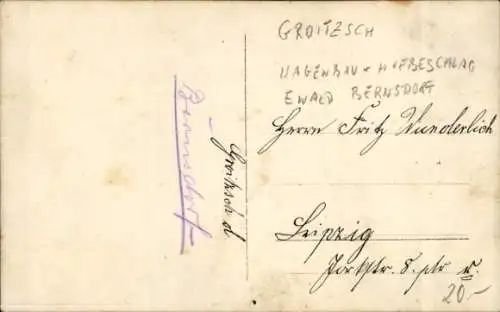 GROITZSCH
WAGENBAU + HUFBESCHLAG
EWALD BERNSDORF
Herrn Fritz Wunderlich
Leipzig
Yorkstr. 8. ptr. r.
20.-
Groitzsch d
Bernsdorf